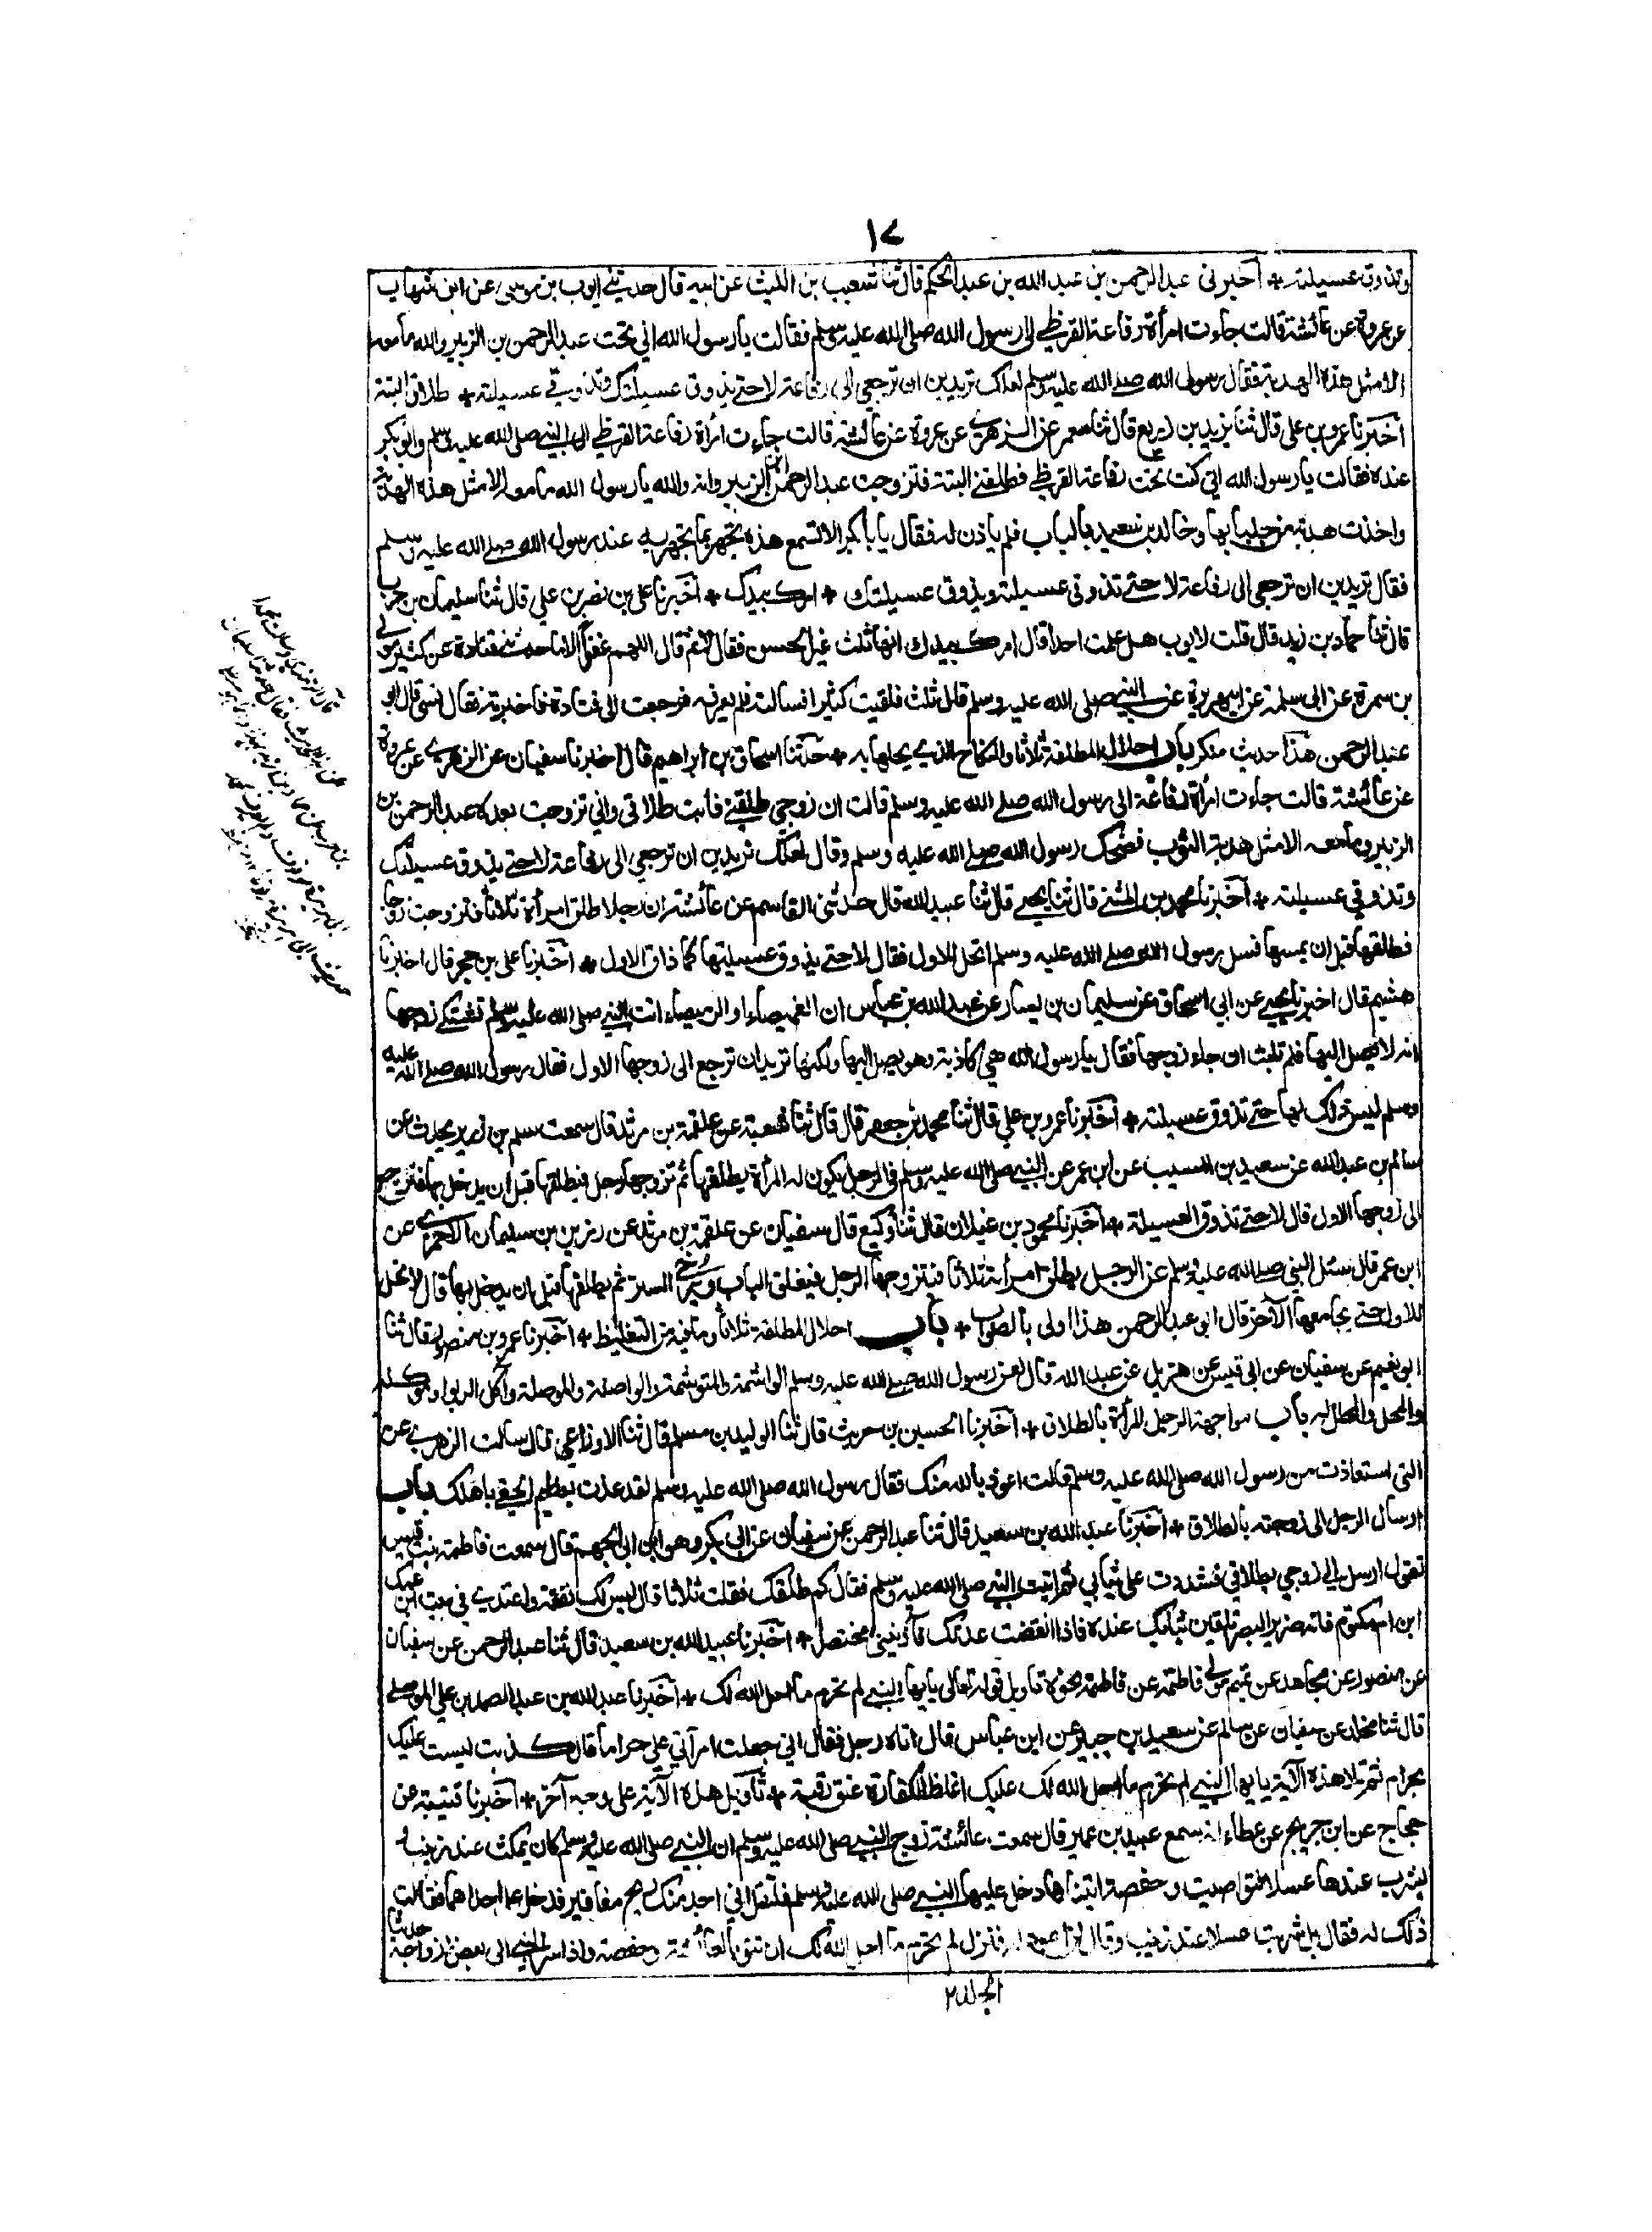 ١٧
وتذوق عسيلته * أخبرني عبد الرحمن بن عبد الله بن عبد الحكم قال ثنا شعيب بن الليث عن ابيه قال حدثني ايوب بن موسى عن ابن شهاب
عن عروة عن عائشة قالت جاءت امرأة رفاعة القرظي الى رسول الله صلى الله عليه وسلم فقالت يا رسول الله اني تحت عبد الرحمن بن الزبير والله ما معه
الا مثل هذه الهدبة فقال رسول الله صلى الله عليه وسلم لعلك تريدين ان ترجعي الى رفاعة لا حتى يذوق عسيلتك وتذوقي عسيلته * طلاق البتة
أخبرنا عمرو بن علي قال ثنا يزيد بن زريع قال ثنا معمر عن الزهري عن عروة عن عائشة قالت جاءت امرأة رفاعة القرظي الى النبي صلى الله عليه وسلم وابو بكر
عنده فقالت يا رسول الله اني كنت تحت رفاعة القرظي فطلقني البتة فتزوجت عبد الرحمن بن الزبير وانه والله يا رسول الله ما معه الا مثل هذه الهدبة
واخذت هدبة من جلبابها وخالد بن سعيد بالباب فلم ياذن له فقال يا ابا بكر الا تسمع هذه تجهر بما تجهر به عند رسول الله صلى الله عليه وسلم
فقال تريدين ان ترجعي الى رفاعة لا حتى تذوقي عسيلته ويذوق عسيلتك * امرك بيدك * أخبرنا علي بن نصر بن علي قال ثنا سليمان بن حرب
قال ثنا حماد بن زيد قال قلت لايوب هل علمت احدا قال امرك بيدك انها ثلث غير الحسن فقال لا ثم قال اللهم غفرا الا ما حدثني قتادة عن كثير مولى
بن سمرة عن ابي سلمة عن ابي هريرة عن النبي صلى الله عليه وسلم قال ثلث فلقيت كثيرا فسالته فلم يعرفه فرجعت الى قتادة فاخبرته فقال نسي قال ابو
عبد الرحمن هذا حديث منكر باب احلال المطلقة ثلاثا والنكاح الذي يحلها به * حدثنا اسحاق بن ابراهيم قال اخبرنا سفيان عن الزهري عن عروة
عن عائشة قالت جاءت امرأة رفاعة الى رسول الله صلى الله عليه وسلم قالت ان زوجي طلقني فأبت طلاقي واني تزوجت بعده عبد الرحمن بن
الزبير وما معه الا مثل هدبة الثوب فضحك رسول الله صلى الله عليه وسلم وقال لعلك تريدين ان ترجعي الى رفاعة لا حتى يذوق عسيلتك
وتذوقي عسيلته * أخبرنا محمد بن المثنى قال ثنا يحيى قال ثنا عبيد الله قال حدثني القاسم عن عائشة ان رجلا طلق امرأة ثلاثا فتزوجت زوجا
فطلقها قبل ان يمسها فسل رسول الله صلى الله عليه وسلم اتحل للاول فقال لا حتى يذوق عسيلتها كما ذاق الاول * أخبرنا علي بن حجر قال اخبرنا
هشيم قال اخبرنا يحيى عن ابي اسحاق عن سليمان بن يسار عن عبد الله بن عباس ان الغميصاء او الرميصاء اتت النبي صلى الله عليه وسلم تشتكي زوجها
انه لا يصل اليها فلم تلبث ان جاء زوجها فقال يا رسول الله هي كاذبة وهو يصل اليها ولكنها تريد ان ترجع الى زوجها الاول فقال رسول الله صلى الله عليه
وسلم ليس ذلك لها حتى تذوق عسيلته * أخبرنا عمرو بن علي قال ثنا محمد بن جعفر قال قال ثنا شعبة عن علقمة بن مرثد قال سمعت سلم بن زرير يحدث عن
سالم بن عبد الله عن سعيد بن المسيب عن ابن عمر عن النبي صلى الله عليه وسلم في الرجل يكون له المرأة يطلقها ثم تزوجها رجل فيطلقها قبل ان يدخل بها فترجع
الى زوجها الاول قال لا حتى تذوق العسيلة * أخبرنا محمود بن غيلان قال ثنا وكيع قال سفيان عن علقمة بن مرثد عن رزين بن سليمان الاحمري عن
ابن عمر قال سئل النبي صلى الله عليه وسلم عن الرجل يطلق امرأته ثلاثا فيتزوجها الرجل فيغلق الباب ويرخي الستر ثم يطلقها قبل ان يدخل بها قال لا تحل
للاول حتى يجامعها الآخر قال ابو عبد الرحمن هذا اولى بالصواب * باب احلال المطلقة ثلاثا وما فيه من التغليظ * أخبرنا عمرو بن منصور قال ثنا
ابو نعيم عن سفيان عن ابي قيس عن هزيل عن عبد الله قال لعن رسول الله صلى الله عليه وسلم الواشمة والموتشمة والواصلة والموصلة وآكل الربوا وموكله
والمحل والمحلل له باب مواجهة الرجل المرأة بالطلاق * أخبرنا الحسين بن حريث قال ثنا الوليد بن مسلم قال ثنا الاوزاعي قال سالت الزهري عن
التي استعاذت من رسول الله صلى الله عليه وسلم قالت اعوذ بالله منك فقال رسول الله صلى الله عليه وسلم لقد عذت بعظيم الحقي باهلك باب
ارسال الرجل الى زوجته بالطلاق * أخبرنا عبيد الله بن سعيد قال ثنا عبد الرحمن عن سفيان عن ابي بكر وهو ابن ابي الجهم قال سمعت فاطمة بنت قيس
تقول ارسل الي زوجي بطلاقي فشددت علي ثيابي ثم اتيت النبي صلى الله عليه وسلم فقال كم طلقك فقلت ثلاثا قال ليس لك نفقة واعتدي في بيت ابن عمك
ابن ام مكتوم فانه ضرير البصر تلقين ثيابك عنده فاذا انقضت عدتك فآذنيني مختصر * أخبرنا عبيد الله بن سعيد قال ثنا عبد الرحمن عن سفيان
عن منصور عن مجاهد عن تميم مولى فاطمة عن فاطمة نحوه تاويل قوله تعالى يايها النبي لم تحرم ما احل الله لك * أخبرنا عبد الله بن عبد الصمد بن علي الموصلي
قال ثنا مخلد عن سفيان عن سالم عن سعيد بن جبير عن ابن عباس قال اتاه رجل فقال اني جعلت امرأتي علي حراما قال كذبت ليست عليك
بحرام ثم تلا هذه الآية يايها النبي لم تحرم ما احل الله لك عليك اغلظ الكفارة عتق رقبة * تأويل هذه الآية على وجه آخر * أخبرنا قتيبة عن
حجاج عن ابن جريج عن عطاء انه سمع عبيد بن عمير قال سمعت عائشة زوج النبي صلى الله عليه وسلم ان النبي صلى الله عليه وسلم كان يمكث عند زينب و
يشرب عندها عسلا فتواصيت وحفصة ايتنا ما دخل عليها النبي صلى الله عليه وسلم فلتقل اني اجد منك ريح مغافير فدخل على احداهما فقالت
ذلك له فقال بل شربت عسلا عند زينب وقال لن اعود له فنزل لم تحرم ما احل الله لك ان تتوبا لعائشة وحفصة واذ اسر النبي الى بعض ازواجه حديثا
المجلد ٢